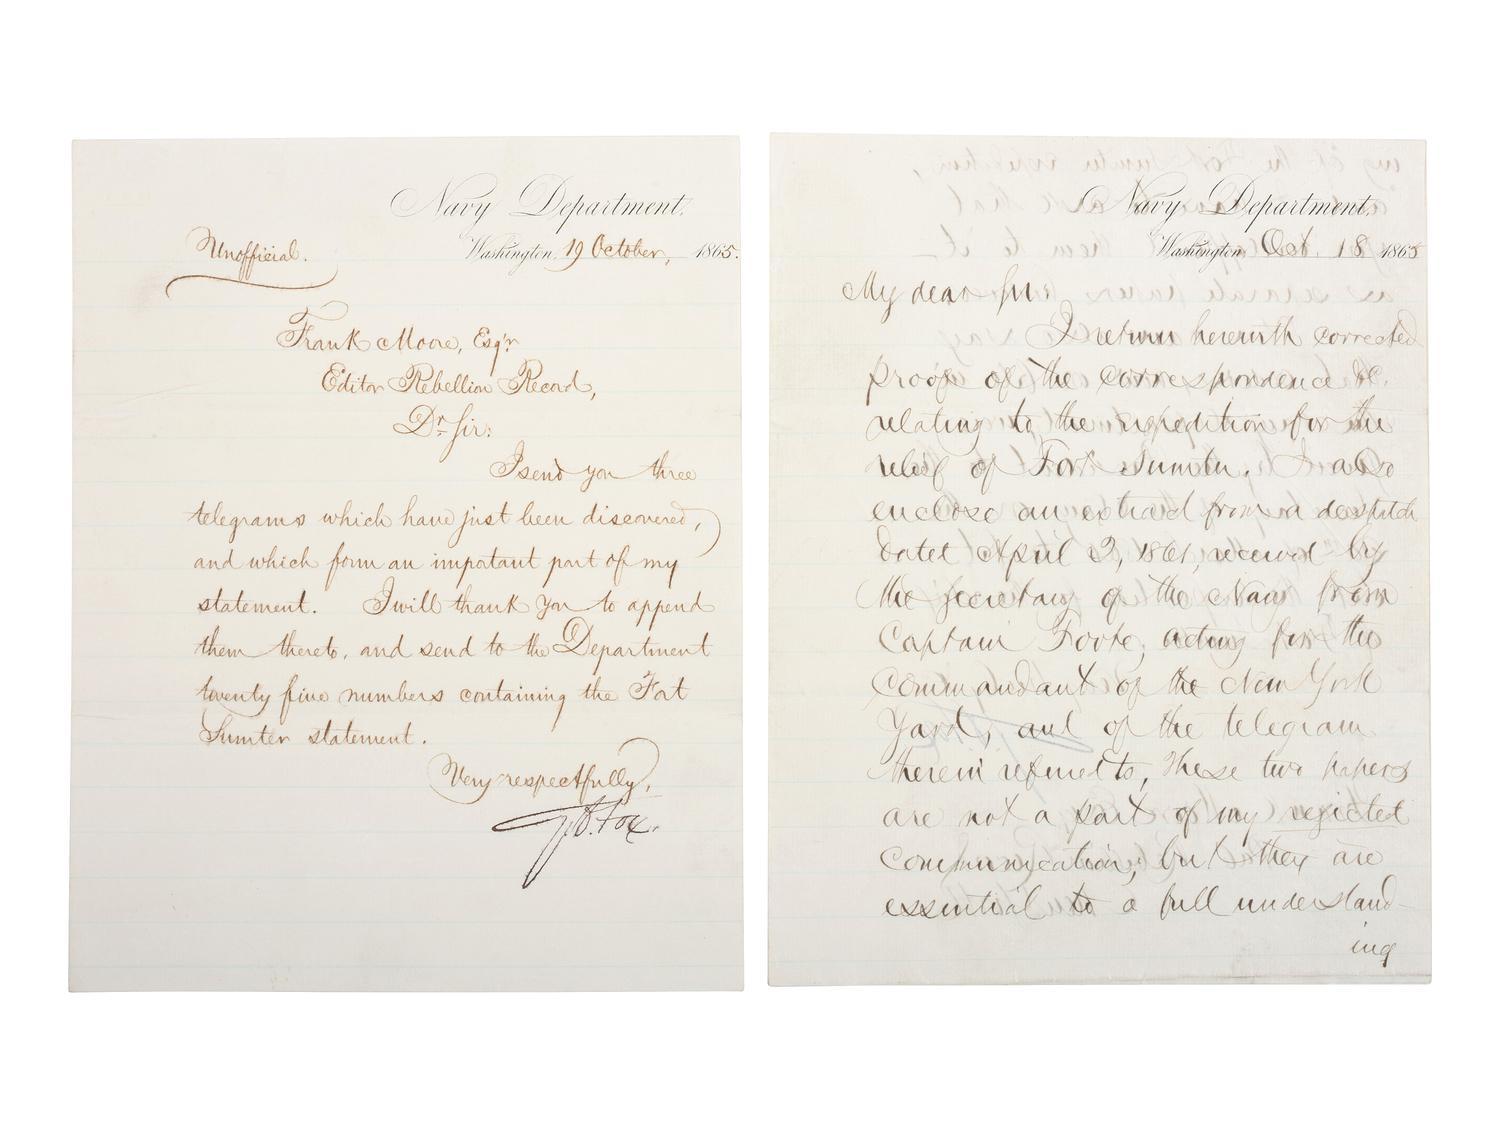 Navy Department.
Unofficial.
Washington, 19 October, 1865.
Frank Moore, Esqr.
Editor Rebellion Record,
Dr. Sir:
I send you three
telegrams which have just been discovered,
and which form an important part of my
statement. I will thank you to append
them thereto, and send to the Department
twenty five numbers containing the Fort
Sumter statement.
Very respectfully,
G.V. Fox.
Navy Department.
Washington, Oct. 18 1865
My dear Sir:
I return herewith corrected
proofs of the correspondence &c.
relating to the expedition for the
relief of Fort Sumter. I also
enclose an extract from a despatch
dated April 9, 1861, received by
the Secretary of the Navy from
Captain Foote, acting for the
Commandant of the New York
Yard, and of the telegram
therein referred to, These two papers
are not a part of my rejected
communication, but they are
essential to a full understand-
ing